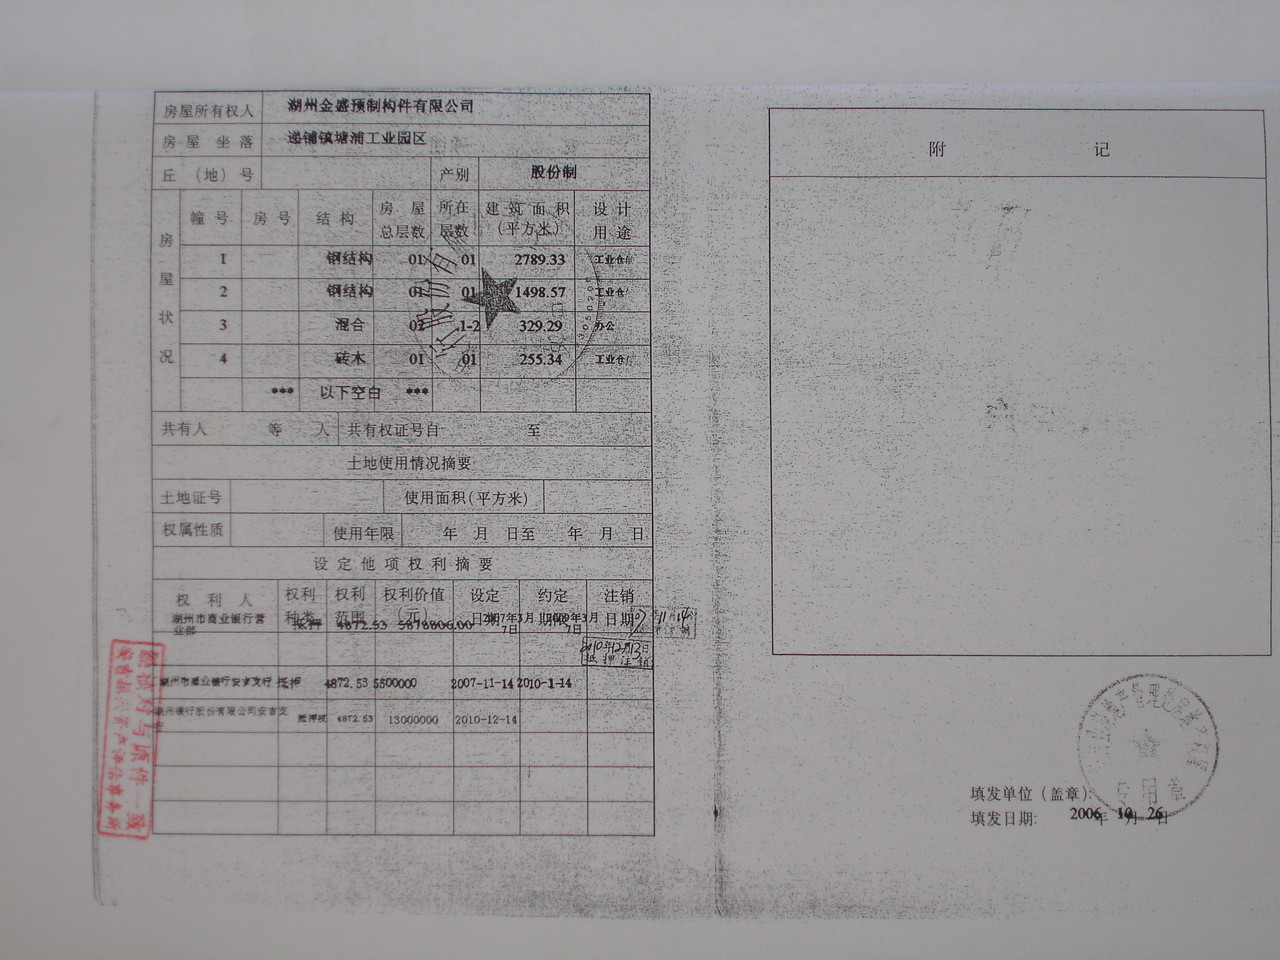 房屋所有权人 湖州金盛预制构件有限公司
房屋坐落 递铺镇塘浦工业园区
丘（地）号 产别 股份制
房屋状况
幢号 房号 结构 房屋总层数 所在层数 建筑面积（平方米） 设计用途
1 钢结构 01 01 2789.33 工业仓
2 钢结构 01 01 1498.57 工业仓
3 混合 02 1-2 329.29 办公
4 砖木 01 01 255.34 工业仓
*** 以下空白 ***
共有人 等 人 共有权证号自 至
土地使用情况摘要
土地证号 使用面积(平方米)
权属性质 使用年限 年 月 日至 年 月 日
设定他项权利摘要
权利人 权利种类 权利范围 权利价值（元） 设定日期 约定期限 注销日期
湖州市商业银行营业部 抵押 4872.53 2007年3月7日 2009年3月7日
2010年12月13日
抵押注销
湖州市商业银行安吉支行 抵押 4872.53 5500000 2007-11-14 2010-1-14
湖州银行股份有限公司安吉支行 抵押权 4872.53 13000000 2010-12-14
附 记
专用章
填发单位（盖章）:
填发日期: 2006年 10月 26日